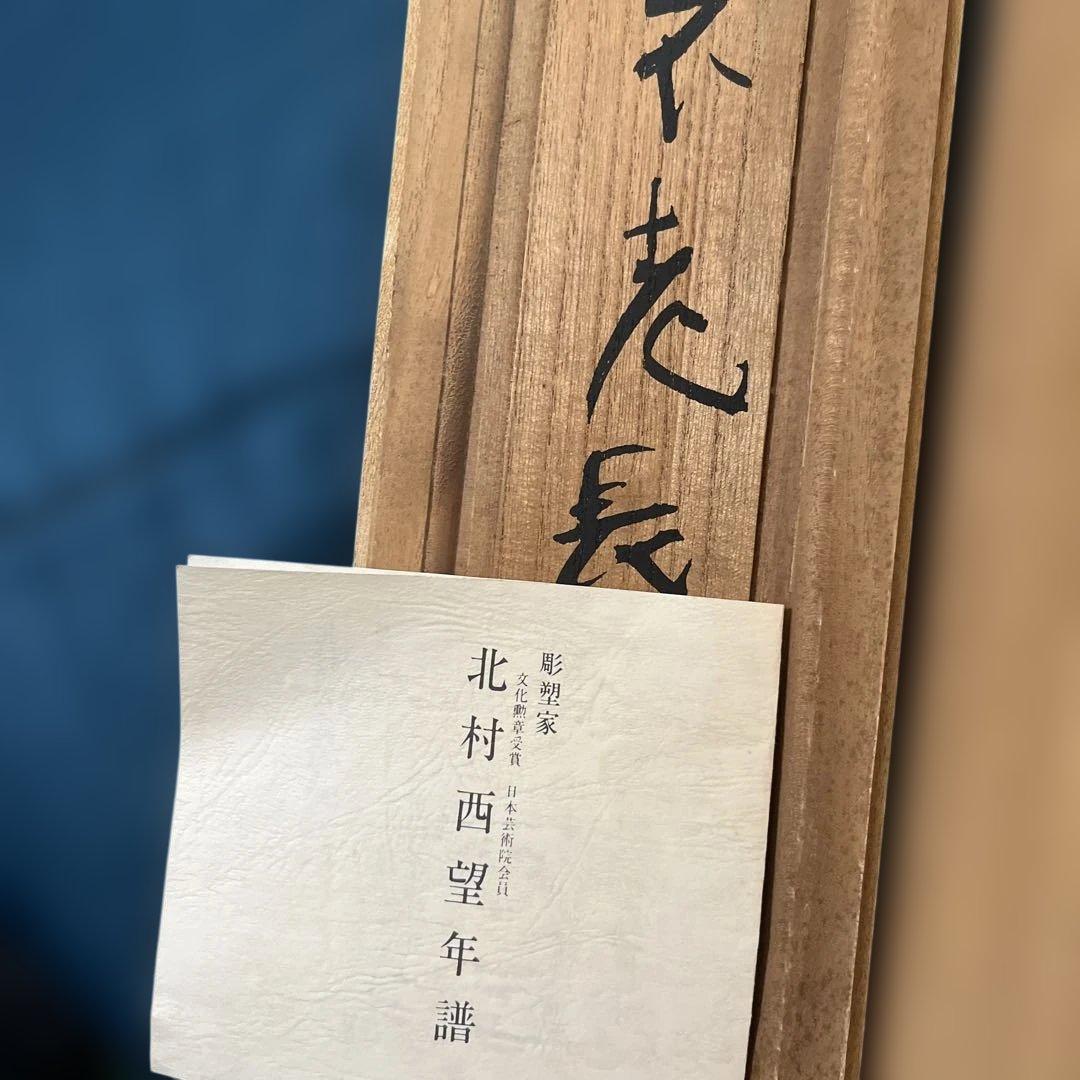 不老長
彫塑家
文化勲章受賞 日本芸術院会員
北村西望年譜